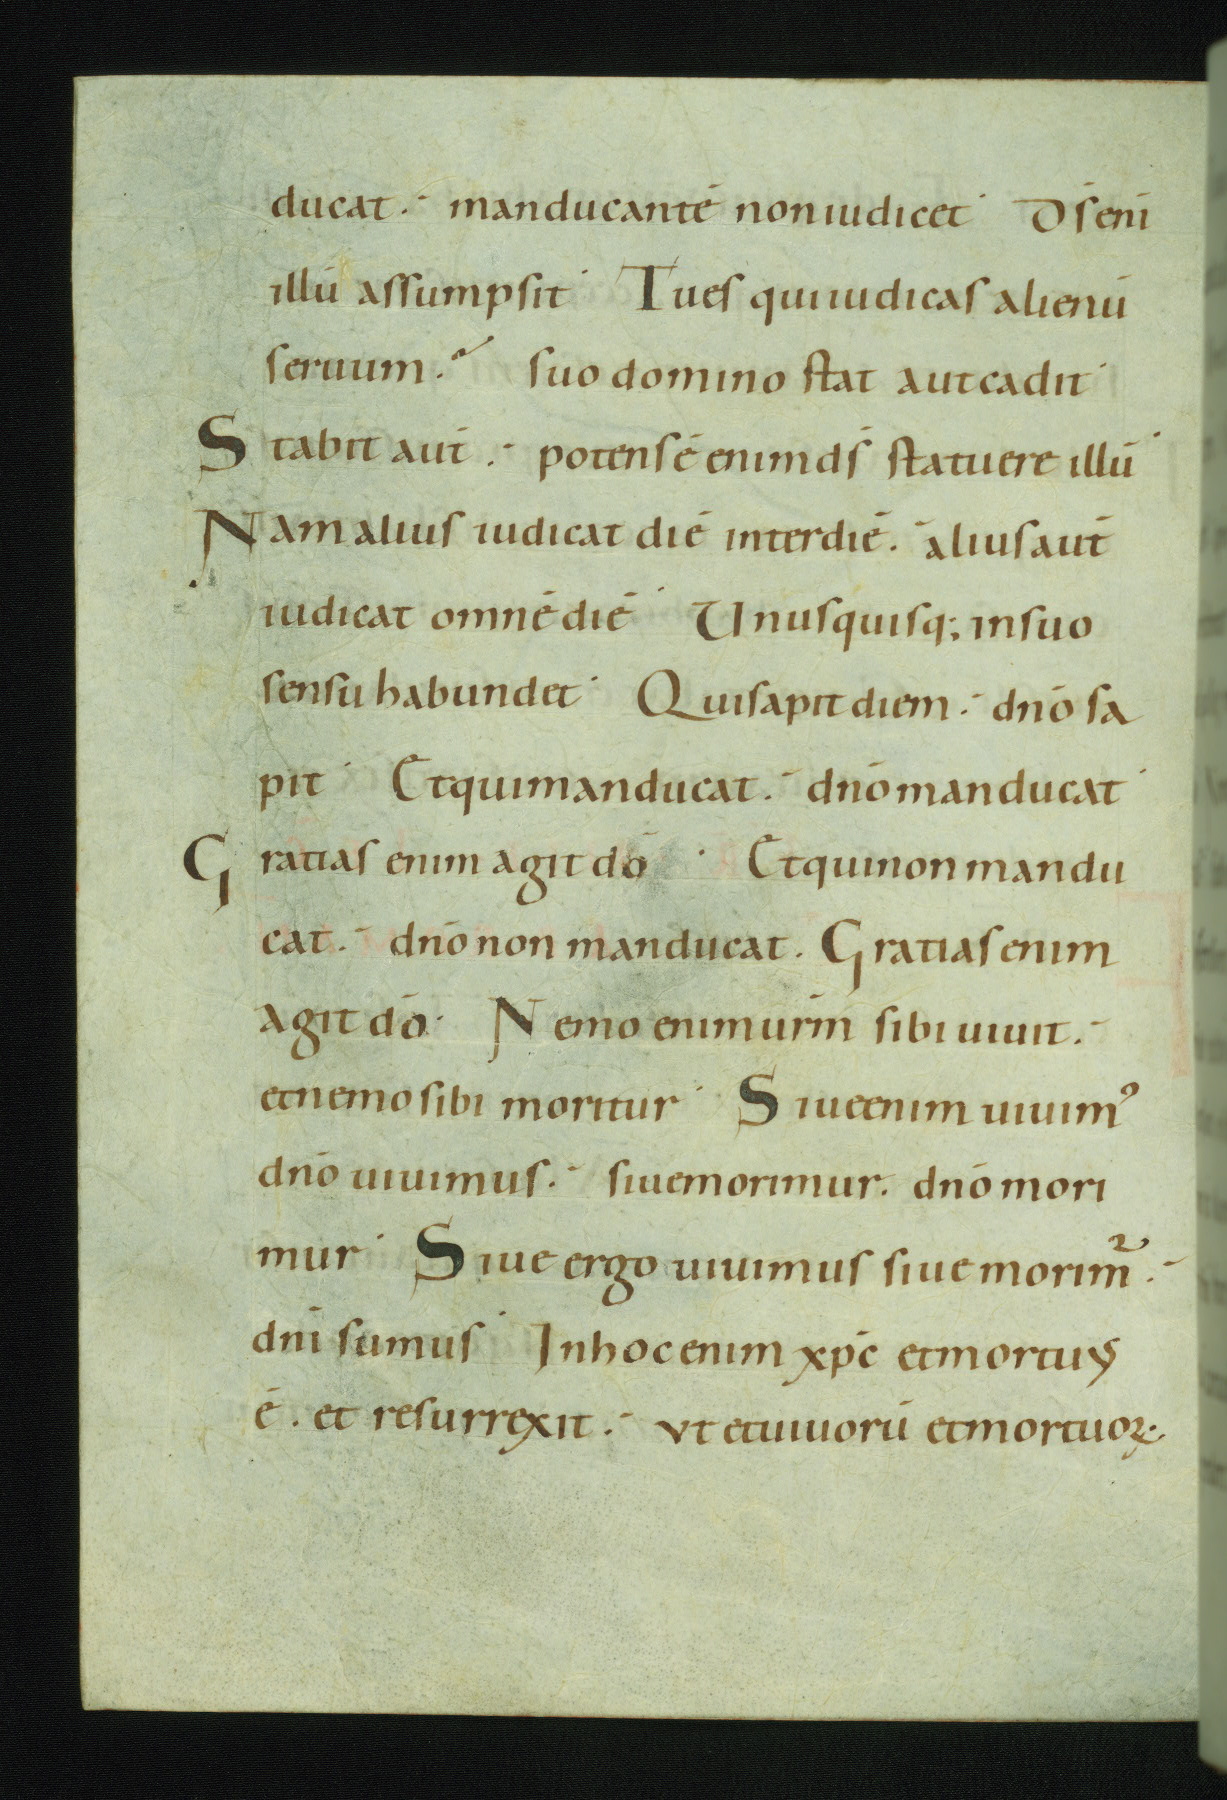 ducat. manducantē non iudicet D̄s eni
illū assumpsit Tu es qui iudicas alienū
seruum. suo domino stat aut cadit
Stabit aut̄. potens ē enim d̄s statuere illū
Nam alius iudicat diē inter diē. alius aut̄
iudicat omnē diē Unusquisq; in suo
sensu habundet Qui sapit diem. dn̄o sa
pit Et qui manducat. dn̄o manducat
Gratias enim agit dō Et qui non mandu
cat. dn̄o non manducat. Gratias enim
agit dō Nemo enim ur̄m sibi uiuit.
et nemo sibi moritur Siue enim uiuimꝰ
dn̄o uiuimus. siue morimur. dn̄o mori
mur Siue ergo uiuimus siue morim̃.
dn̄i sumus In hoc enim xp̄c et mortuus
ē. et resurrexit. ut et uiuorū et mortuoꝝ